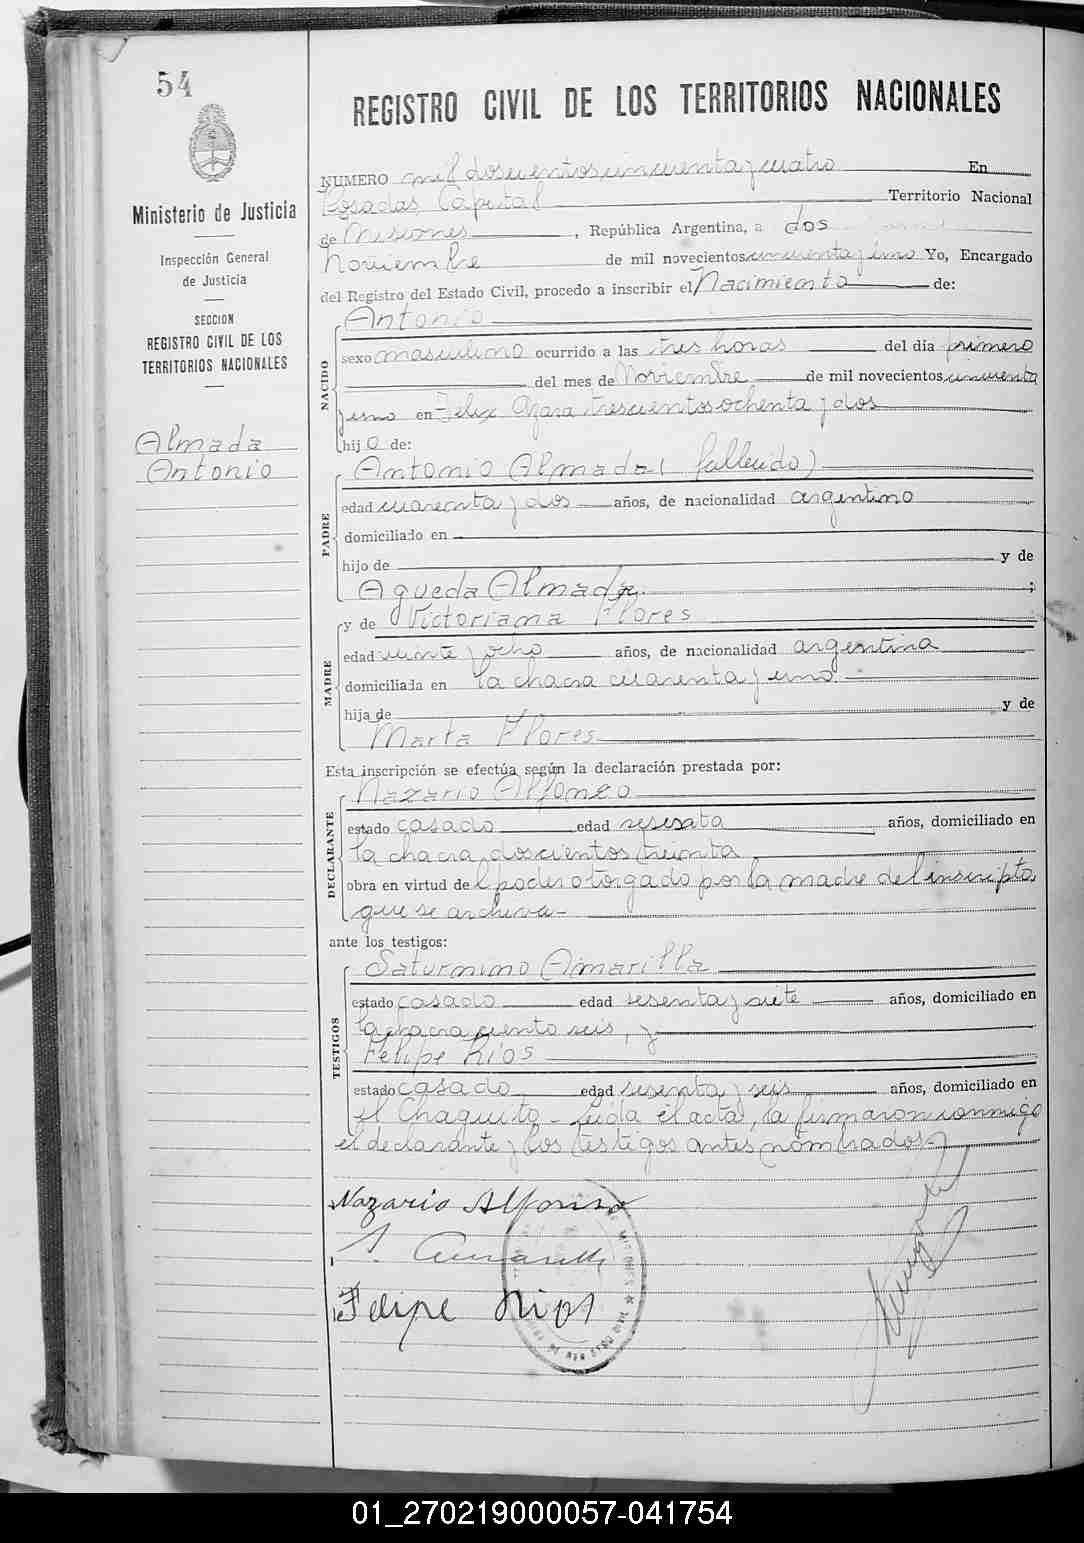 54
REGISTRO CIVIL DE LOS TERRITORIOS NACIONALES
Ministerio de Justicia
Inspección General
de Justicia
SECCION
REGISTRO CIVIL DE LOS
TERRITORIOS NACIONALES
Almada
Antonio
NUMERO mil doscientos cincuenta y cuatro En
Posadas, Capital Territorio Nacional
de Misiones, República Argentina, a dos
Noviembre de mil novecientos cincuenta y uno Yo, Encargado
del Registro del Estado Civil, procedo a inscribir el Nacimiento de:
NACIDO
Antonio
sexo masculino ocurrido a las tres horas del día primero
del mes de Noviembre de mil novecientos cincuenta
y uno en Felix Azara trescientos ochenta y dos
hijo de:
PADRE
Antonio Almada (fallecido)
edad cuarenta y dos años, de nacionalidad argentino
domiciliado en
hijo de y de
Agueda Almada ;
MADRE
y de Victoriana Flores
edad veinte y ocho años, de nacionalidad argentina
domiciliada en la chacra cuarenta y uno
hija de y de
Marta Flores
Esta inscripción se efectúa según la declaración prestada por:
DECLARANTE
Nazario Alfonzo
estado casado edad sesenta años, domiciliado en
la chacra doscientos treinta
obra en virtud del poder otorgado por la madre del inscripto
que se archiva-
ante los testigos:
TESTIGOS
Saturnino Amarilla
estado casado edad sesenta y siete años, domiciliado en
la chacra ciento seis, y
Felipe Rios
estado casado edad sesenta y seis años, domiciliado en
el Chaquito - Leida el acta, la firmaron conmigo
el declarante y los testigos antes nombrados-
Nazario Alfonso
S. Amarilla
Felipe Rios
MISIONES
01_270219000057-041754